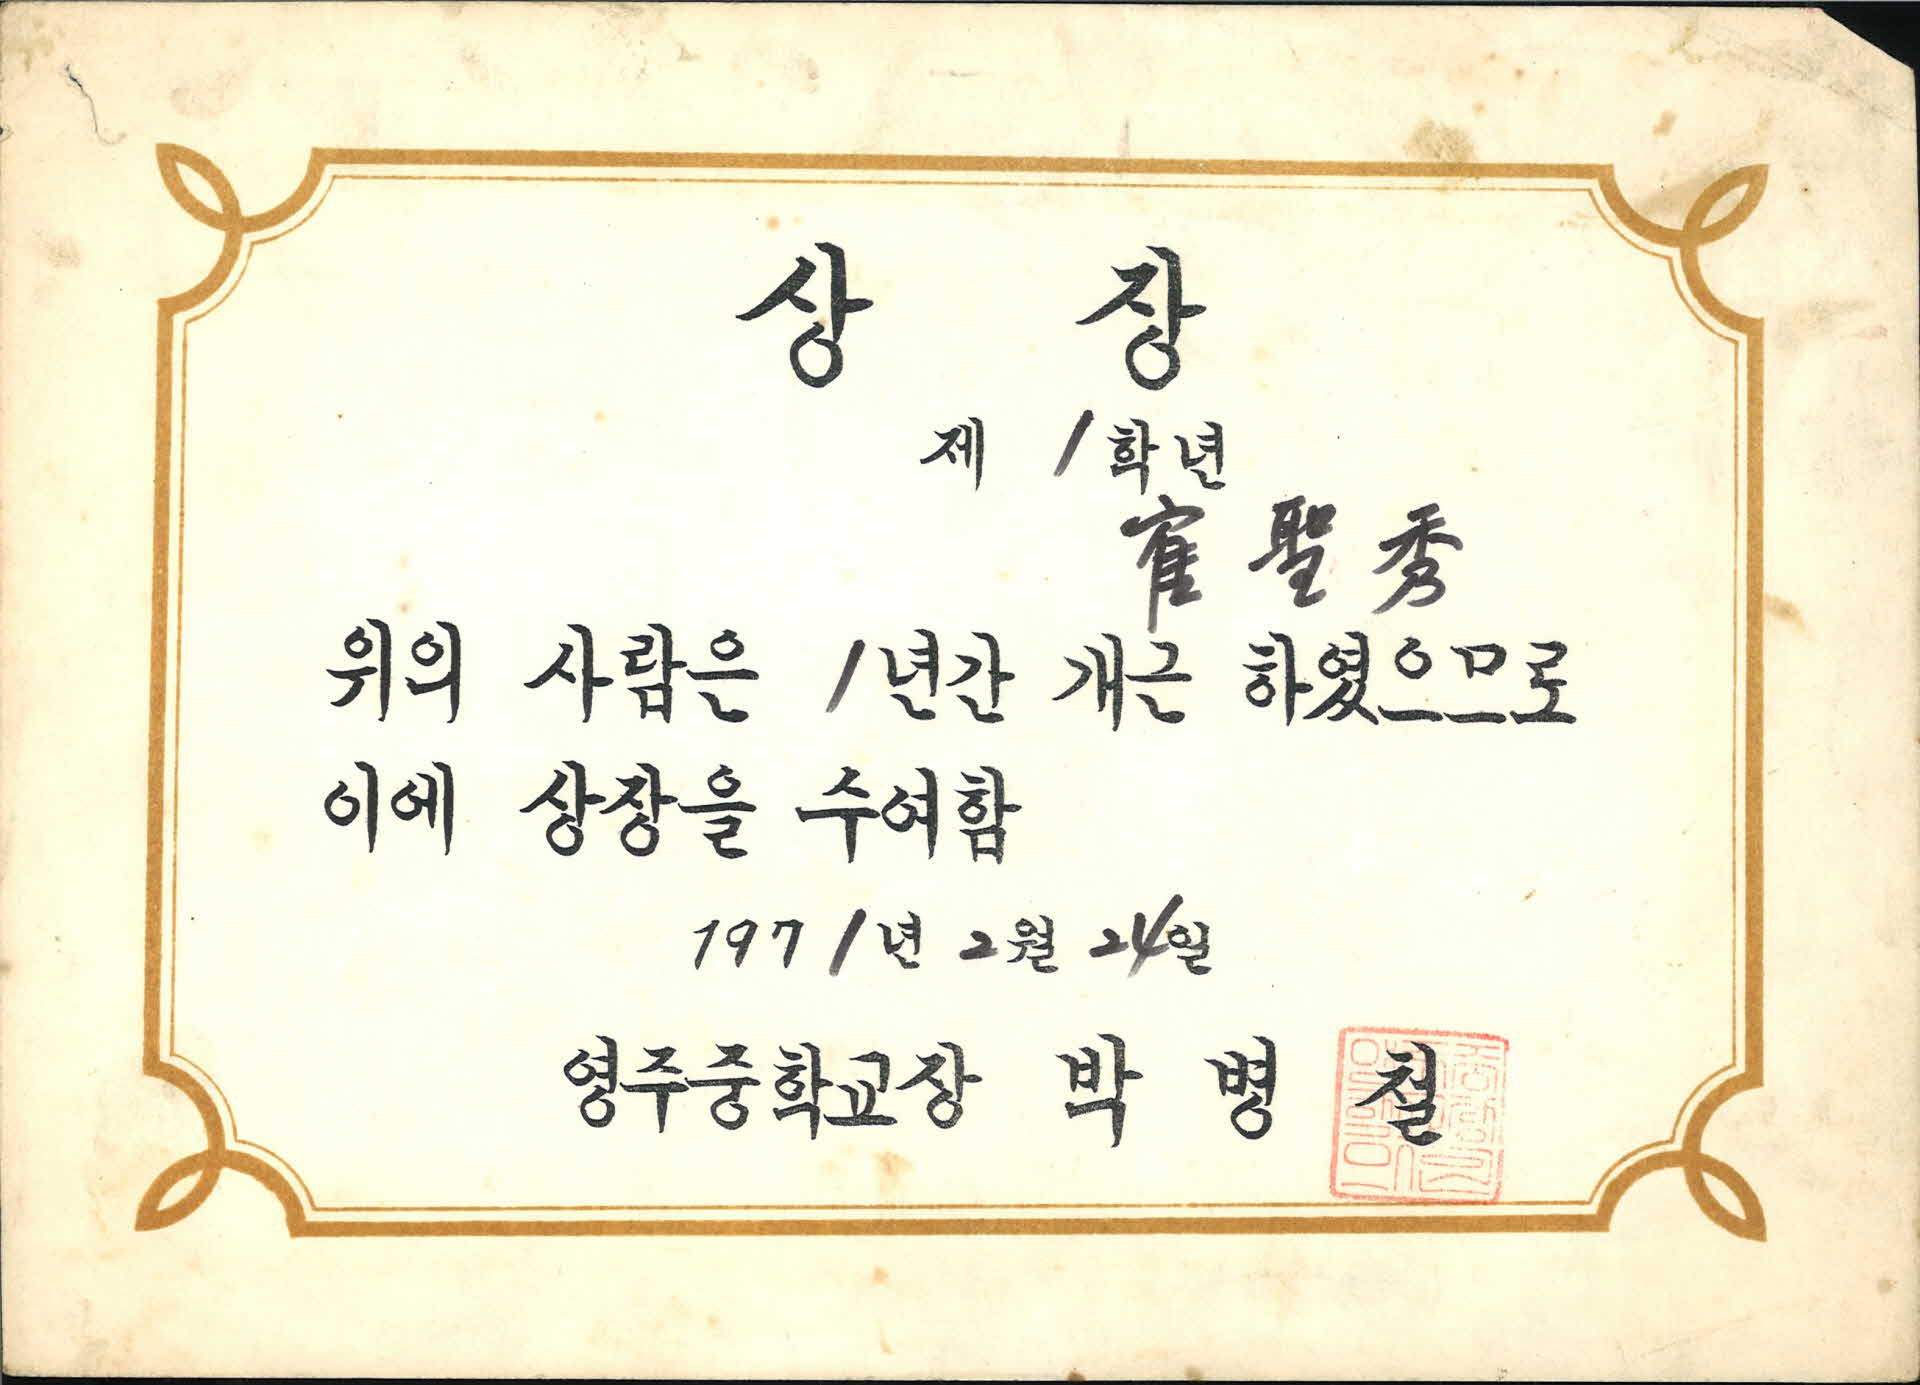 상 장
제 1학년
崔聖秀
위의 사람은 1년간 개근 하였으므로
이에 상장을 수여함
1971년 2월 24일
영주중학교장 박 병 철